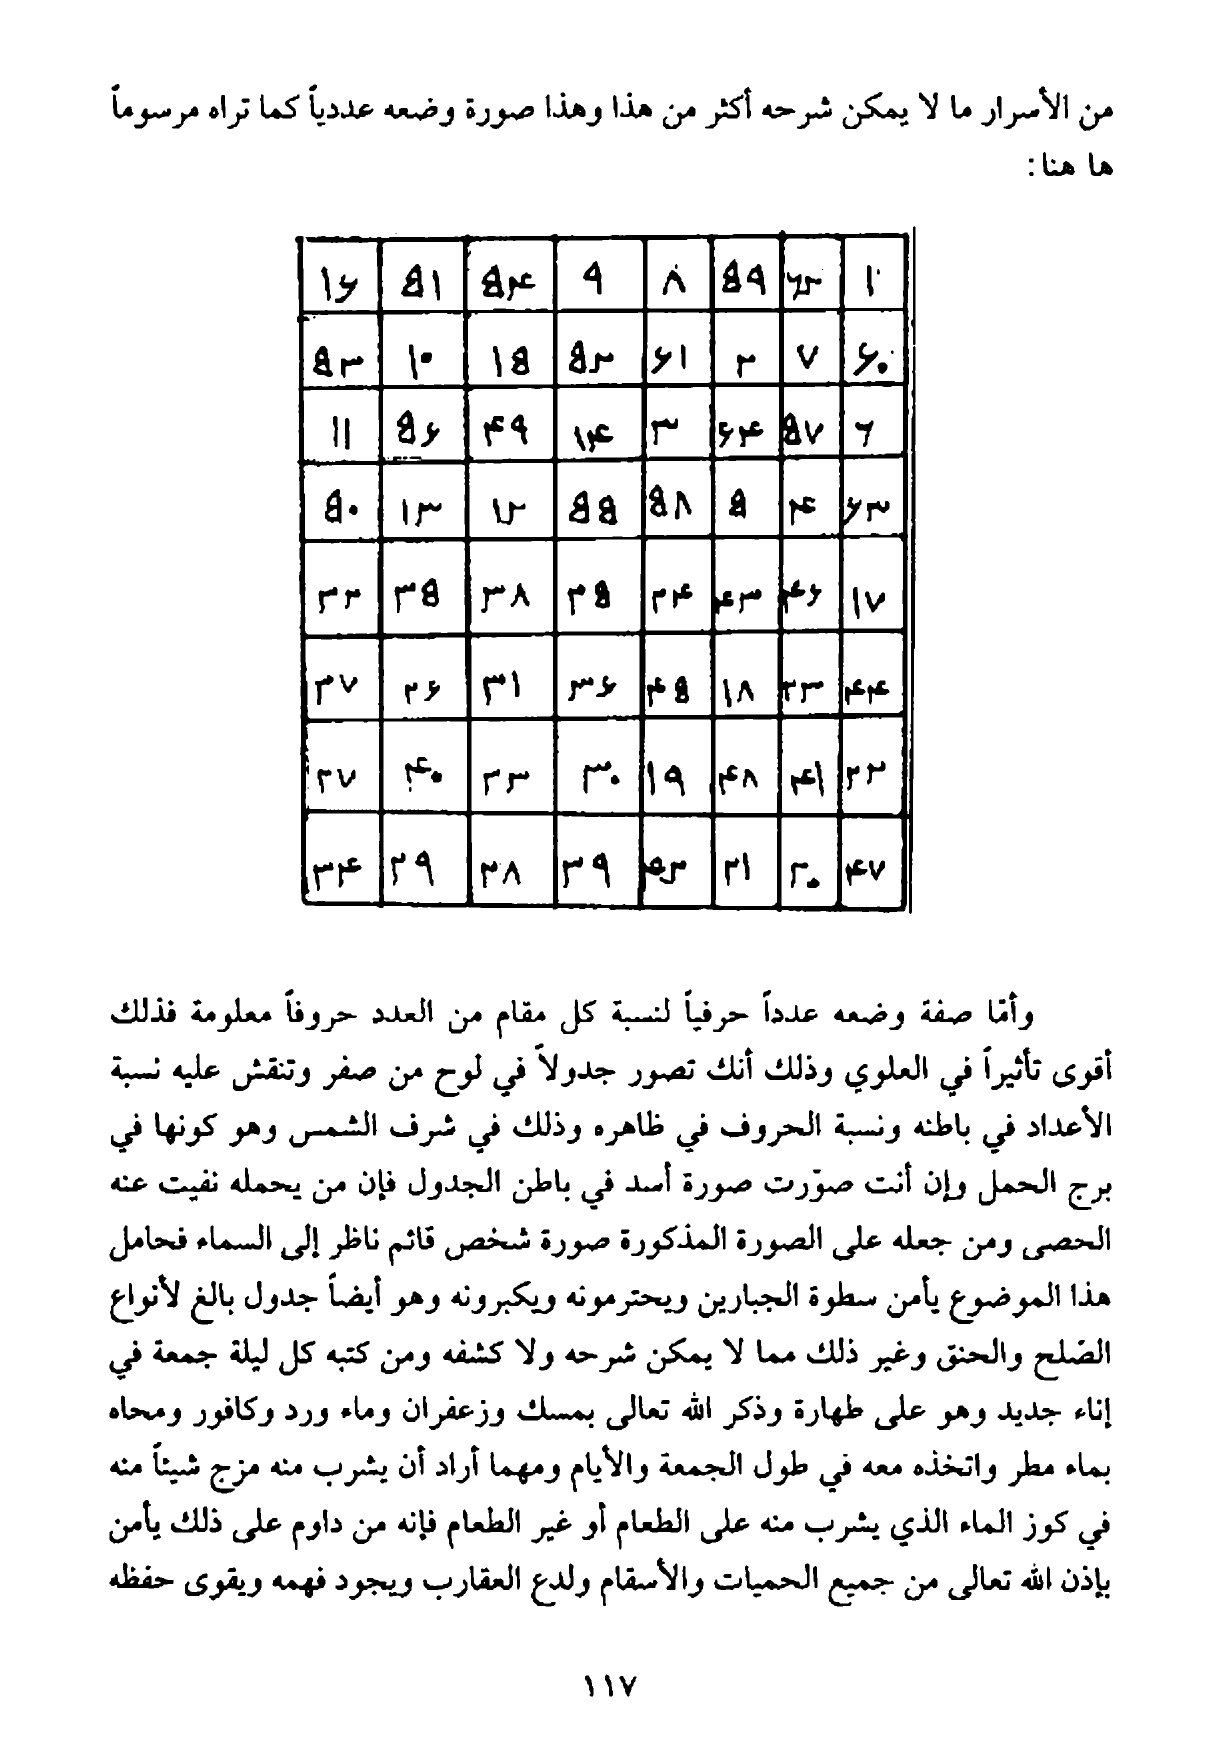 من الأسرار ما لا يمكن شرحه أكثر من هذا وهذا صورة وضعه عددياً كما تراه مرسوماً
ها هنا:
١ ٦٢ ٥٩ ٨ ٩ ٥٤ ٥١ ١٦
٦٠ ٧ ٢ ٦١ ٥٢ ١٥ ١٠ ٥٣
٦ ٥٧ ٦٤ ٣ ١٤ ٤٩ ٥٦ ١١
٦٣ ٤ ٥ ٥٨ ٥٥ ١٢ ١٣ ٥٠
١٧ ٤٦ ٤٣ ٢٤ ٢٥ ٣٨ ٣٥ ٣٢
٤٤ ٢٣ ١٨ ٤٥ ٣٦ ٣١ ٢٦ ٣٧
٢٢ ٤١ ٤٨ ١٩ ٣٠ ٣٣ ٤٠ ٢٧
٤٧ ٢٠ ٢١ ٤٢ ٣٩ ٢٨ ٢٩ ٣٤
وأمّا صفة وضعه عدداً حرفياً لنسبة كل مقام من العدد حروفاً معلومة فذلك
أقوى تأثيراً في العلوي وذلك أنك تصور جدولاً في لوح من صفر وتنقش عليه نسبة
الأعداد في باطنه ونسبة الحروف في ظاهره وذلك في شرف الشمس وهو كونها في
برج الحمل وإن أنت صوّرت صورة أسد في باطن الجدول فإن من يحمله نفيت عنه
الحصى ومن جعله على الصورة المذكورة صورة شخص قائم ناظر إلى السماء فحامل
هذا الموضوع يأمن سطوة الجبارين ويحترمونه ويكبرونه وهو أيضاً جدول بالغ لأنواع
الصّلح والحنق وغير ذلك مما لا يمكن شرحه ولا كشفه ومن كتبه كل ليلة جمعة في
إناء جديد وهو على طهارة وذكر الله تعالى بمسك وزعفران وماء ورد وكافور ومحاه
بماء مطر واتخذه معه في طول الجمعة والأيام ومهما أراد أن يشرب منه مزج شيئاً منه
في كوز الماء الذي يشرب منه على الطعام أو غير الطعام فإنه من داوم على ذلك يأمن
بإذن الله تعالى من جميع الحميات والأسقام ولدع العقارب ويجود فهمه ويقوى حفظه
١١٧